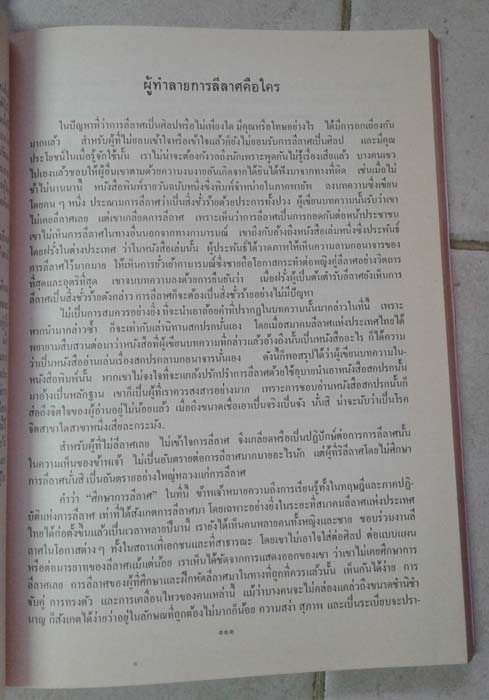 ผู้ทำลายการลีลาศคือใคร
ในปัญหาที่ว่าการลีลาศเป็นศิลปหรือไม่เพียงใด มีคุณหรือโทษอย่างไร ได้มีการถกเถียงกัน
มากแล้ว สำหรับผู้ที่ไม่ยอมเข้าใจหรือเข้าใจแล้วก็ยังไม่ยอมรับการลีลาศเป็นศิลป และมีคุณ
ประโยชน์ในเมื่อรู้จักใช้นั้น เราไม่น่าจะต้องกังวลถึงนักเพราะพูดกันไม่รู้เรื่องเสียแล้ว บางคนเขา
ไปเองแล้วชอบให้ผู้อื่นเขาตามด้วยความงมงายอันเกิดจากได้ยินได้ฟังมาจากทางที่ผิด เช่นเมื่อไม่
ช้าไม่นานมานี้ หนังสือพิมพ์รายวันฉบับหนึ่งซึ่งพิมพ์จำหน่ายในภาคพายัพ ลงบทความซึ่งเขียน
โดยคน ๆ หนึ่ง ประณามการลีลาศว่าเป็นสิ่งชั่วร้ายด้วยประการทั้งปวง ผู้เขียนบทความนั้นรับว่าเขา
ไม่เคยลีลาศเลย แต่เขาเกลียดการลีลาศ เพราะเห็นว่าการลีลาศเป็นการกอดกันต่อหน้าประชาชน
เขาไม่เห็นการลีลาศในทางอื่นนอกจากทางกามารมณ์ เขาถึงกับอ้างถึงหนังสือเล่มหนึ่งซึ่งประพันธ์
โดยฝรั่งในต่างประเทศ ว่าในหนังสือเล่มนั้น ผู้ประพันธ์ได้วาดภาพให้เห็นความลามกอนาจารของ
การลีลาศไว้มากมาย ให้เห็นการยั่วเย้ากามารมณ์ซึ่งชายถือโอกาสกระทำต่อหญิงคู่ลีลาศอย่างวิตถาร
ที่สุดและอุตริที่สุด เขาจบบทความลงด้วยการยืนยันว่า เมื่อฝรั่งผู้เป็นต้นตำรับลีลาศยังเห็นการ
ลีลาศเป็นสิ่งชั่วร้ายดังกล่าว การลีลาศก็จะต้องเป็นสิ่งชั่วร้ายอย่างไม่มีปัญหา
ไม่เป็นการสมควรอย่างยิ่ง ที่จะนำเอาถ้อยคำที่ปรากฏในบทความนั้นมากล่าวในที่นี้ เพราะ
หากนำมากล่าวซ้ำ ก็จะเท่ากับเล่านิทานสกปรกนั่นเอง โดยเมื่อสมาคมลีลาศแห่งประเทศไทยได้
พยายามสืบสวนต่อมาว่าหนังสือที่ผู้เขียนบทความที่กล่าวแล้วอ้างถึงนั้นเป็นหนังสืออะไร ก็ได้ความ
ว่าเป็นหนังสืออ่านเล่นเรื่องสกปรกลามกอนาจารนั่นเอง ดังนี้ก็พอสรุปได้ว่าผู้เขียนบทความใน
หนังสือพิมพ์นั้น หากเขาไม่จงใจที่จะแกล้งปรักปรำการลีลาศด้วยใช้อุบายนำเอาหนังสือสกปรกนั้น
มาอ้างเป็นหลักฐาน เขาก็เป็นผู้ที่เราควรสงสารอย่างมาก เพราะการชอบอ่านหนังสือสกปรกนั้นก็
ส่อถึงจิตใจของผู้อ่านอยู่ไม่น้อยแล้ว เมื่อถึงขนาดเชื่อเอาเป็นจริงเป็นจัง นั่นสิ น่าจะนับว่าเป็นโรค
จิตสาขาใดสาขาหนึ่งเสียละกระมัง.
สำหรับผู้ที่ไม่ลีลาศเลย ไม่เข้าใจการลีลาศ จึงเกลียดหรือเป็นปฏิปักษ์ต่อการลีลาศนั้น
ในความเห็นของข้าพเจ้า ไม่เป็นอันตรายต่อการลีลาศมากมายอะไรนัก แต่ผู้ที่ลีลาศโดยไม่ศึกษา
การลีลาศนั่นสิ เป็นอันตรายอย่างใหญ่หลวงแก่การลีลาศ
คำว่า “ศึกษาการลีลาศ” ในที่นี้ ข้าพเจ้าหมายความถึงการเรียนรู้ทั้งในทฤษฎีและภาคปฏิ-
บัติแห่งการลีลาศ เท่าที่ได้สังเกตการลีลาศมา โดยเฉพาะอย่างยิ่งในระยะที่สมาคมลีลาศแห่งประเทศ
ไทยได้ก่อตั้งขึ้นแล้วเป็นเวลาหลายปีมานี้ เรายังได้เห็นคนหลายคนทั้งหญิงและชาย ชอบร่วมงานลี
ลาศในโอกาสต่าง ๆ ทั้งในสถานที่เอกชนและที่สาธารณะ โดยเขาไม่เอาใจใส่ต่อศิลป ต่อแบบแผน
หรือต่อมารยาทของลีลาศแม้แต่น้อย เราเห็นได้ชัดจากการแสดงออกของเขา ว่าเขาไม่เคยศึกษาการ
ลีลาศเลย การลีลาศของผู้ที่ศึกษาและฝึกหัดลีลาศมาในทางที่ถูกที่ควรแล้วนั้น เห็นกันได้ง่าย การ
จับคู่ การทรงตัว และการเคลื่อนไหวของคนเหล่านี้ แม้ว่าบางคนจะไม่คล่องแคล่วถึงขนาดชำนิชำ
นาญ ก็สังเกตได้ง่ายว่าอยู่ในลักษณะที่ถูกต้องไม่มากก็น้อย ความสง่า สุภาพ และเป็นระเบียบจะปรา-
๑๑๑